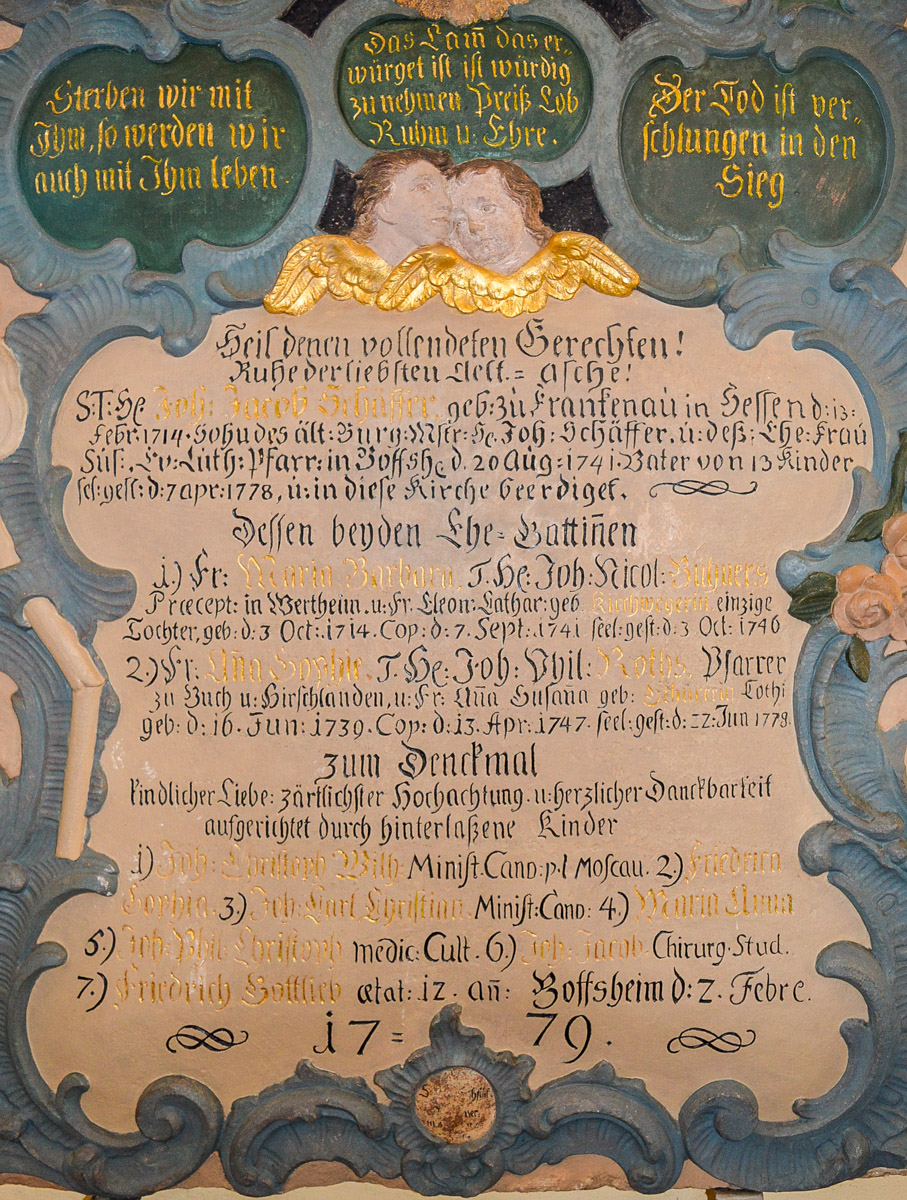 Sterben wir mit
Ihm, so werden wir
auch mit Ihm leben.
Das Lam̅ das er-
würget ist ist würdig
zu nehmen Preiß Lob
Ruhm u. Ehre.
Der Tod ist ver-
schlungen in den
Sieg
Heil denen vollendeten Gerechten!
Ruhe der liebsten Aelt.= asche!
S.T. He. Joh: Jacob Schäffer, geb: zu Frankenau in Hessen d: 13:
Febr. 1714. Sohn des ält: Burg: Mstr: He. Joh: Schäffer. u: deß: Ehe: Frau
Sus:, Ev: Luth: Pfarr: in Boffsh: d. 20 Aug: 1741. Vater von 13 Kinder
sel: gest: d: 7 apr: 1778, u: in diese Kirche beerdiget.
Dessen beyden Ehe= Gattin̅en
1.) Fr: Maria Barbara, T. He: Joh: Nicol: Bühners
Præcept: in Wertheim. u: Fr. Eleon: Cathar: geb. Kirchwegerin einzige
Tochter, geb: d: 3 Oct:. 1714. Cop: d: 7. Sept:. 1741 seel: gest: d: 3 Oct: 1746
2.) Fr: An̅a Sophie, T. He: Joh: Phil: Roths, Pfarrer
zu Buch u: Hirschlanden, u: Fr: An̅a Susan̅a geb: Tothi
geb: d: 16. Jun: 1739. Cop: d: 13. Apr: 1747. seel: gest: d: 22: Jun 1778.
zum Denckmal
kindlicher Liebe: zärtlichster Hochachtung. u: herzlicher Danckbarkeit
aufgerichtet durch hinterlaßene Kinder
1) Joh: Christoph Wilh: Minist: Cand: p.l Moscau. 2.) Friedrica
Sophia. 3.) Joh: Carl Christian, Minist: Cand: 4.) Maria Anna
5.) Joh: Phil: Christoph medic: Cult. 6.) Joh: Jacob Chirurg. Stud.
7.) Friedrich Gottlieb ætat: 12. an̅: Boffsheim d: 2. Febre.
17= 79.